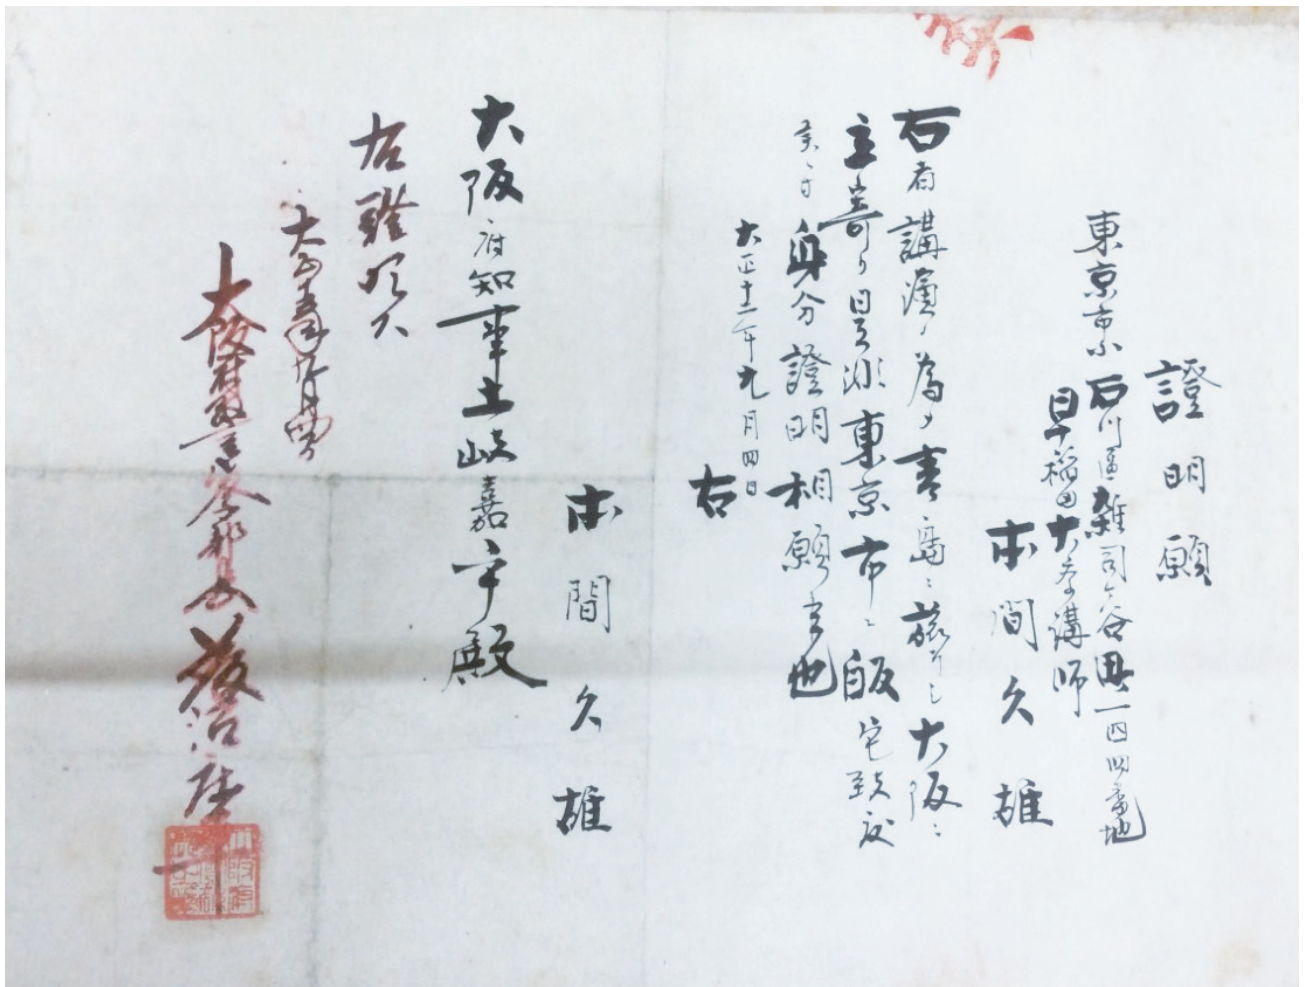 證明願
東京市小石川區雑司ヶ谷町一四四番地
早稲田大学講師
本間久雄
右者講演ノ為メ青島ニ旅行シ大阪ニ
立寄リ是非東京市ニ皈宅致度
候ニ付身分證明相願候也
大正十二年九月四日
右
本間久雄
大阪府知事土岐嘉平殿
右證明ス
大正十二年九月四日
大阪府警察部長